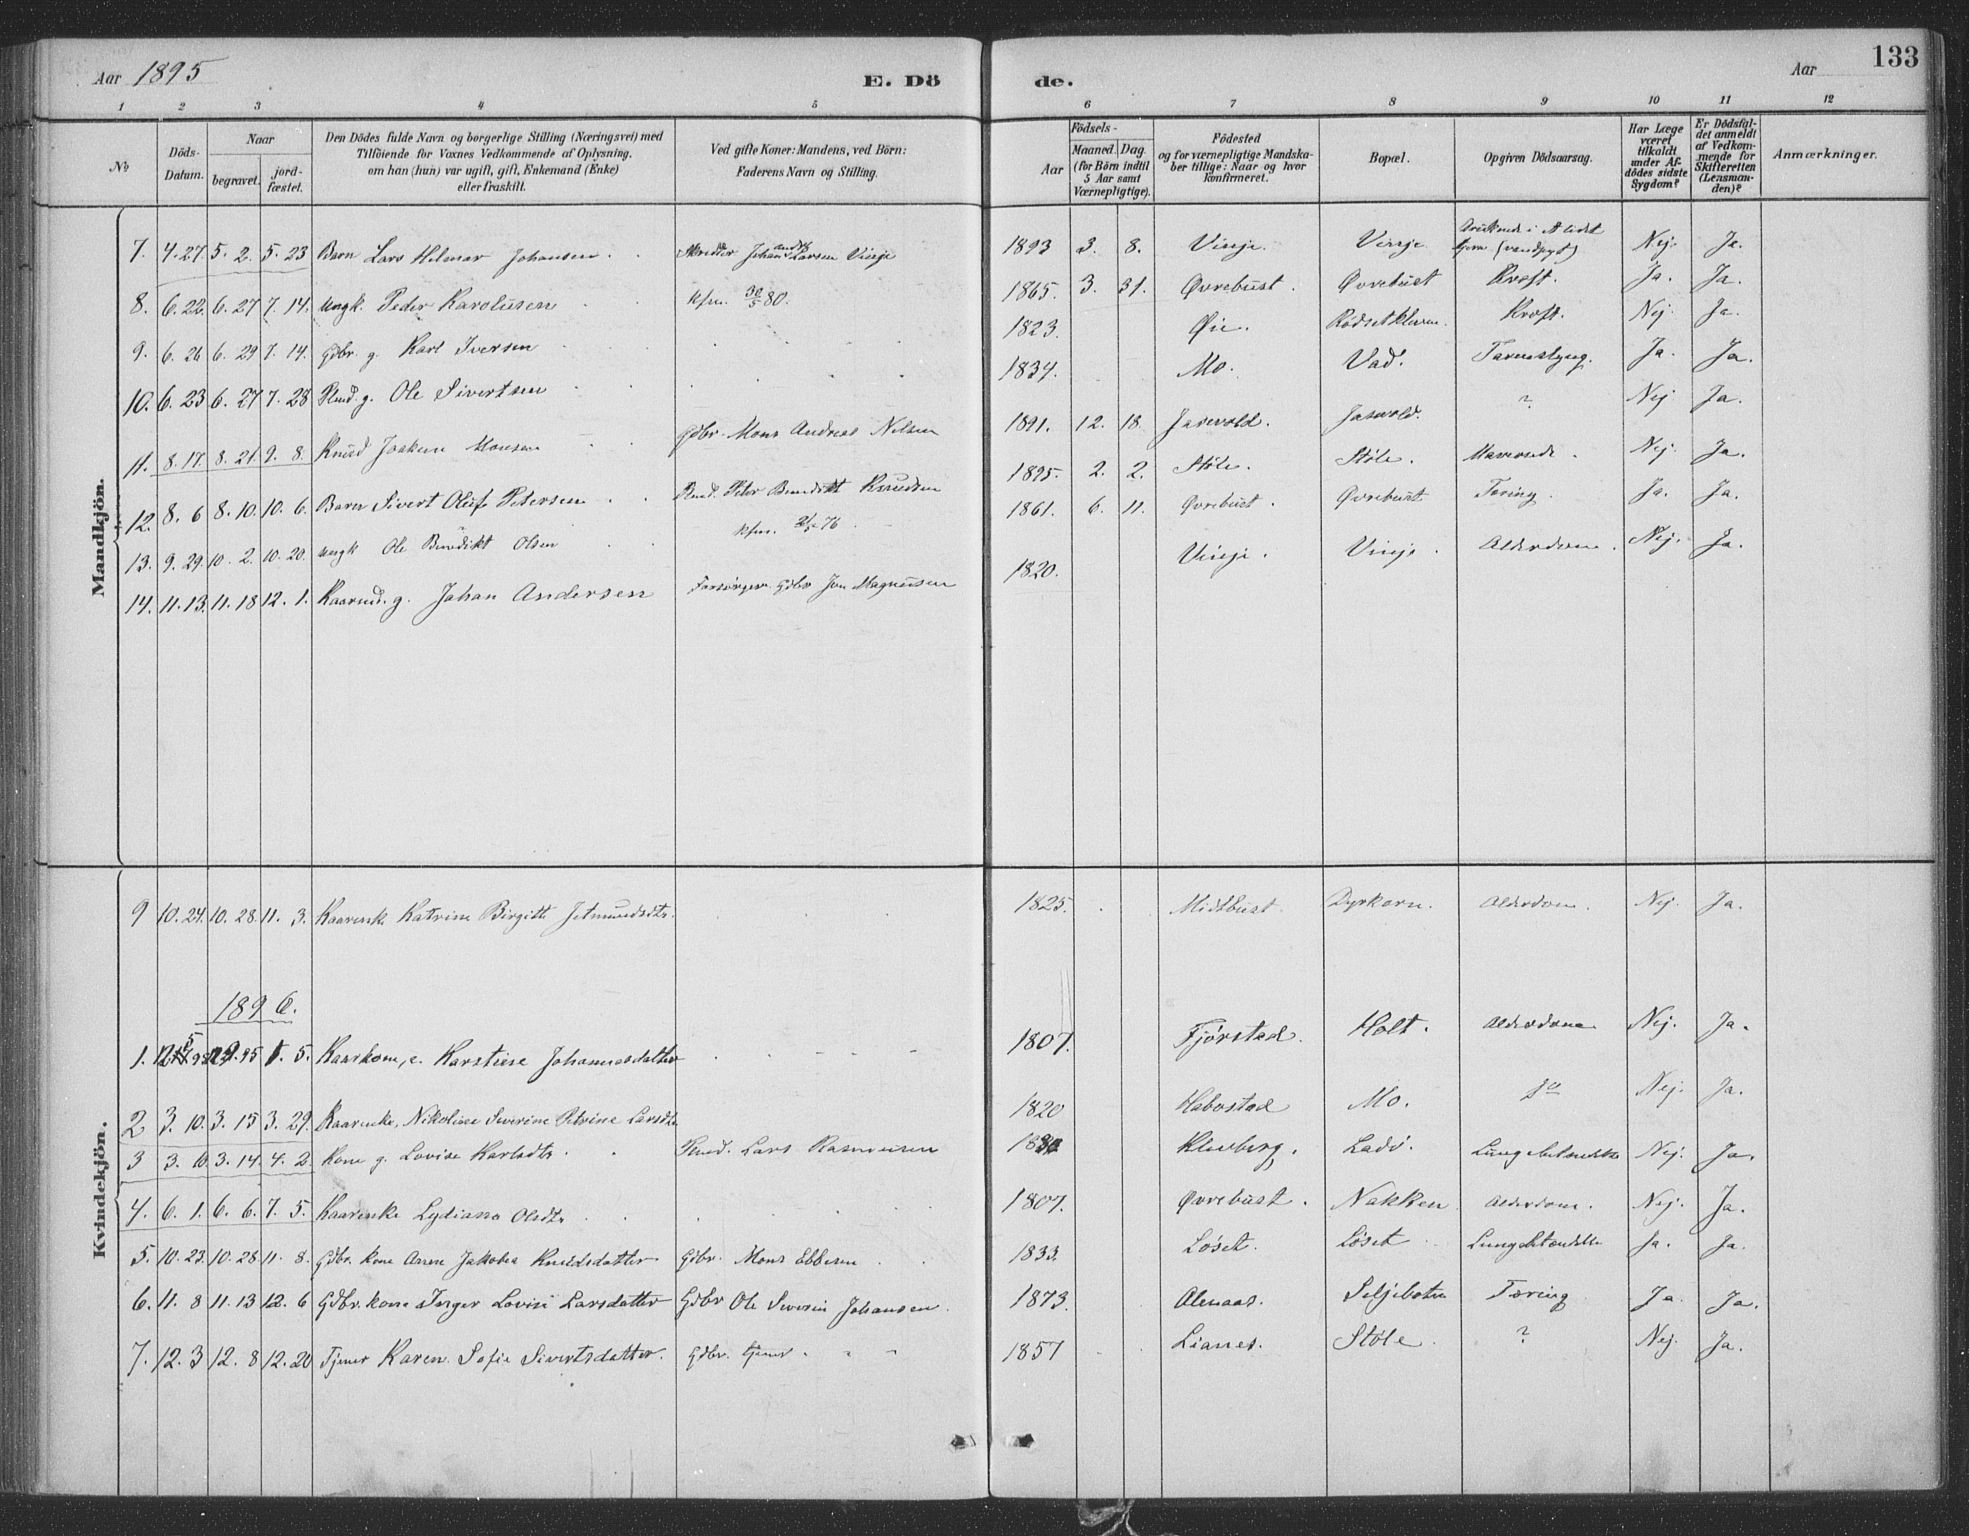 Aar 1895 E. Dö de. Aar 133
1 2 3 4 5 6 7 8 9 10 11 12
No
Döds-Datum.
Naar begravet. jordfæstet.
Den Dödes fulde Navn og borgerlige Stilling (Næringsvei) med
Tilföiende for Voxnes Vedkommende af Oplysning,
om han (hun) var ugift, gift, Enkemand (Enke)
eller fraskilt.
Ved gifte Koner: Mandens, ved Börn:
Faderens Navn og Stilling.
Aar
Födsels-
Maaned. Dag.
(for Börn indtil
5 Aar samt
Værnepligtige).
Födested
og for værnepligtige Mandska-
ber tillige: Naar og hvor
konfirmeret.
Bopæl.
Opgiven Dödsaarsag.
Har Læge
været
tilkaldt
under Af-
dödes sidste
Sygdom?
Er Dödsfal-
det anmeldt
af Vedkom-
mende for
Skifteretten
(Lensman-
den)?
Anmærkninger.
Mandkjön.
7. 4.27. 5. 2. 5. 23 Barn Lars Hilmar Johansen Johan Larsen Vinje 1893 3. 8. Vinje. Vinje Nej. Ja.
8. 6.22. 6. 27 7. 14. Ungk. Peder Karolusen kfm. 30/5 80. 1865. 3. 31. Øvrebust. Øvrebust Kræft. Ja. Ja.
9. 6. 26 6. 29 7. 14. Gdbr. g. Karl Iversen 1823. Øie. Rødsetkleven. Kræft. Nej. Ja.
10. 6. 23 6. 27 7. 28 g. Ole Sivertsen 1834. Mo. Vad. Tarmslyng. Ja. Ja.
11. 8. 17. 8. 21. 9. 8. Knud Joakim Monsen Gdbr. Mons Andreas Nilsen 1891. 12. 18. ? Nej Ja.
12. 8. 6 8. 10. 10. 6. Barn Sivert Oluf Petersen Peter Benedikt Knudsen 1895. 2. 2. Støle. Støle. Nej. Ja.
13. 9. 29. 10. 2. 10. 20. Ungk Ole Benedikt Olsen kfm. 76. 1861. 6. 11. Øvrebust. Øvrebust Tæring. Ja. Ja.
14. 11. 13. 11. 18 12. 1. Kaarmd. g. Johan Andersen Forsørger Gdbr Jon Magnusen 1820. Vinje. Vinje. Alderdom. Nej. Ja.
Kvindekjön.
9 10. 24. 10. 28 11. 3. Kaarenke Katrine Birgitte Jetmundsdtr. 1825. Midtbust. Dyrkorn. Alderdom. Nej. Ja.
1896.
1. 5. Kaarkone, e. Karstine Johannesdatter 1807. Fjørstad. Holt. Alderdom Nej. Ja.
2 3. 10. 3. 15 3. 29. Kaarenke, Nikoline Severine Petrine Larsdtr. 1820 Habostad Mo. do Nej. Ja.
3 3. 10. 3. 14. 4. 2. Kone g. Lovise Karlsdtr. Lars Rasmusen Kleveberg. Ladö. Lungebetændelse Nej. Ja.
4. 6. 1. 6. 6. 7. 5. Kaarenke Lydiana Olsdtr 1807. Øvrebust. Nakken. Alderdom. Nej. Ja.
5. 10. 23. 10. 28 11. 8. Gdbr. kone Anne Jakobea Knudsdatter Gdbr. Mons Ebbesen 1833. Løset. Løset Lungebetændelse Ja. Ja.
6. 11. 8 11. 13 12. 6 Gdbr. kone Inger Lovise Larsdatter Gdbr Ole Severin Johansen. 1873. Alenaas. Seljebotn Tæring. Ja. Ja.
7. 12. 3 12. 8 12. 20 Tjener Karen Sofie Sivertsdatter. Gdbr. tjener 1857 Lianes. Støle. ? Nej. Ja.